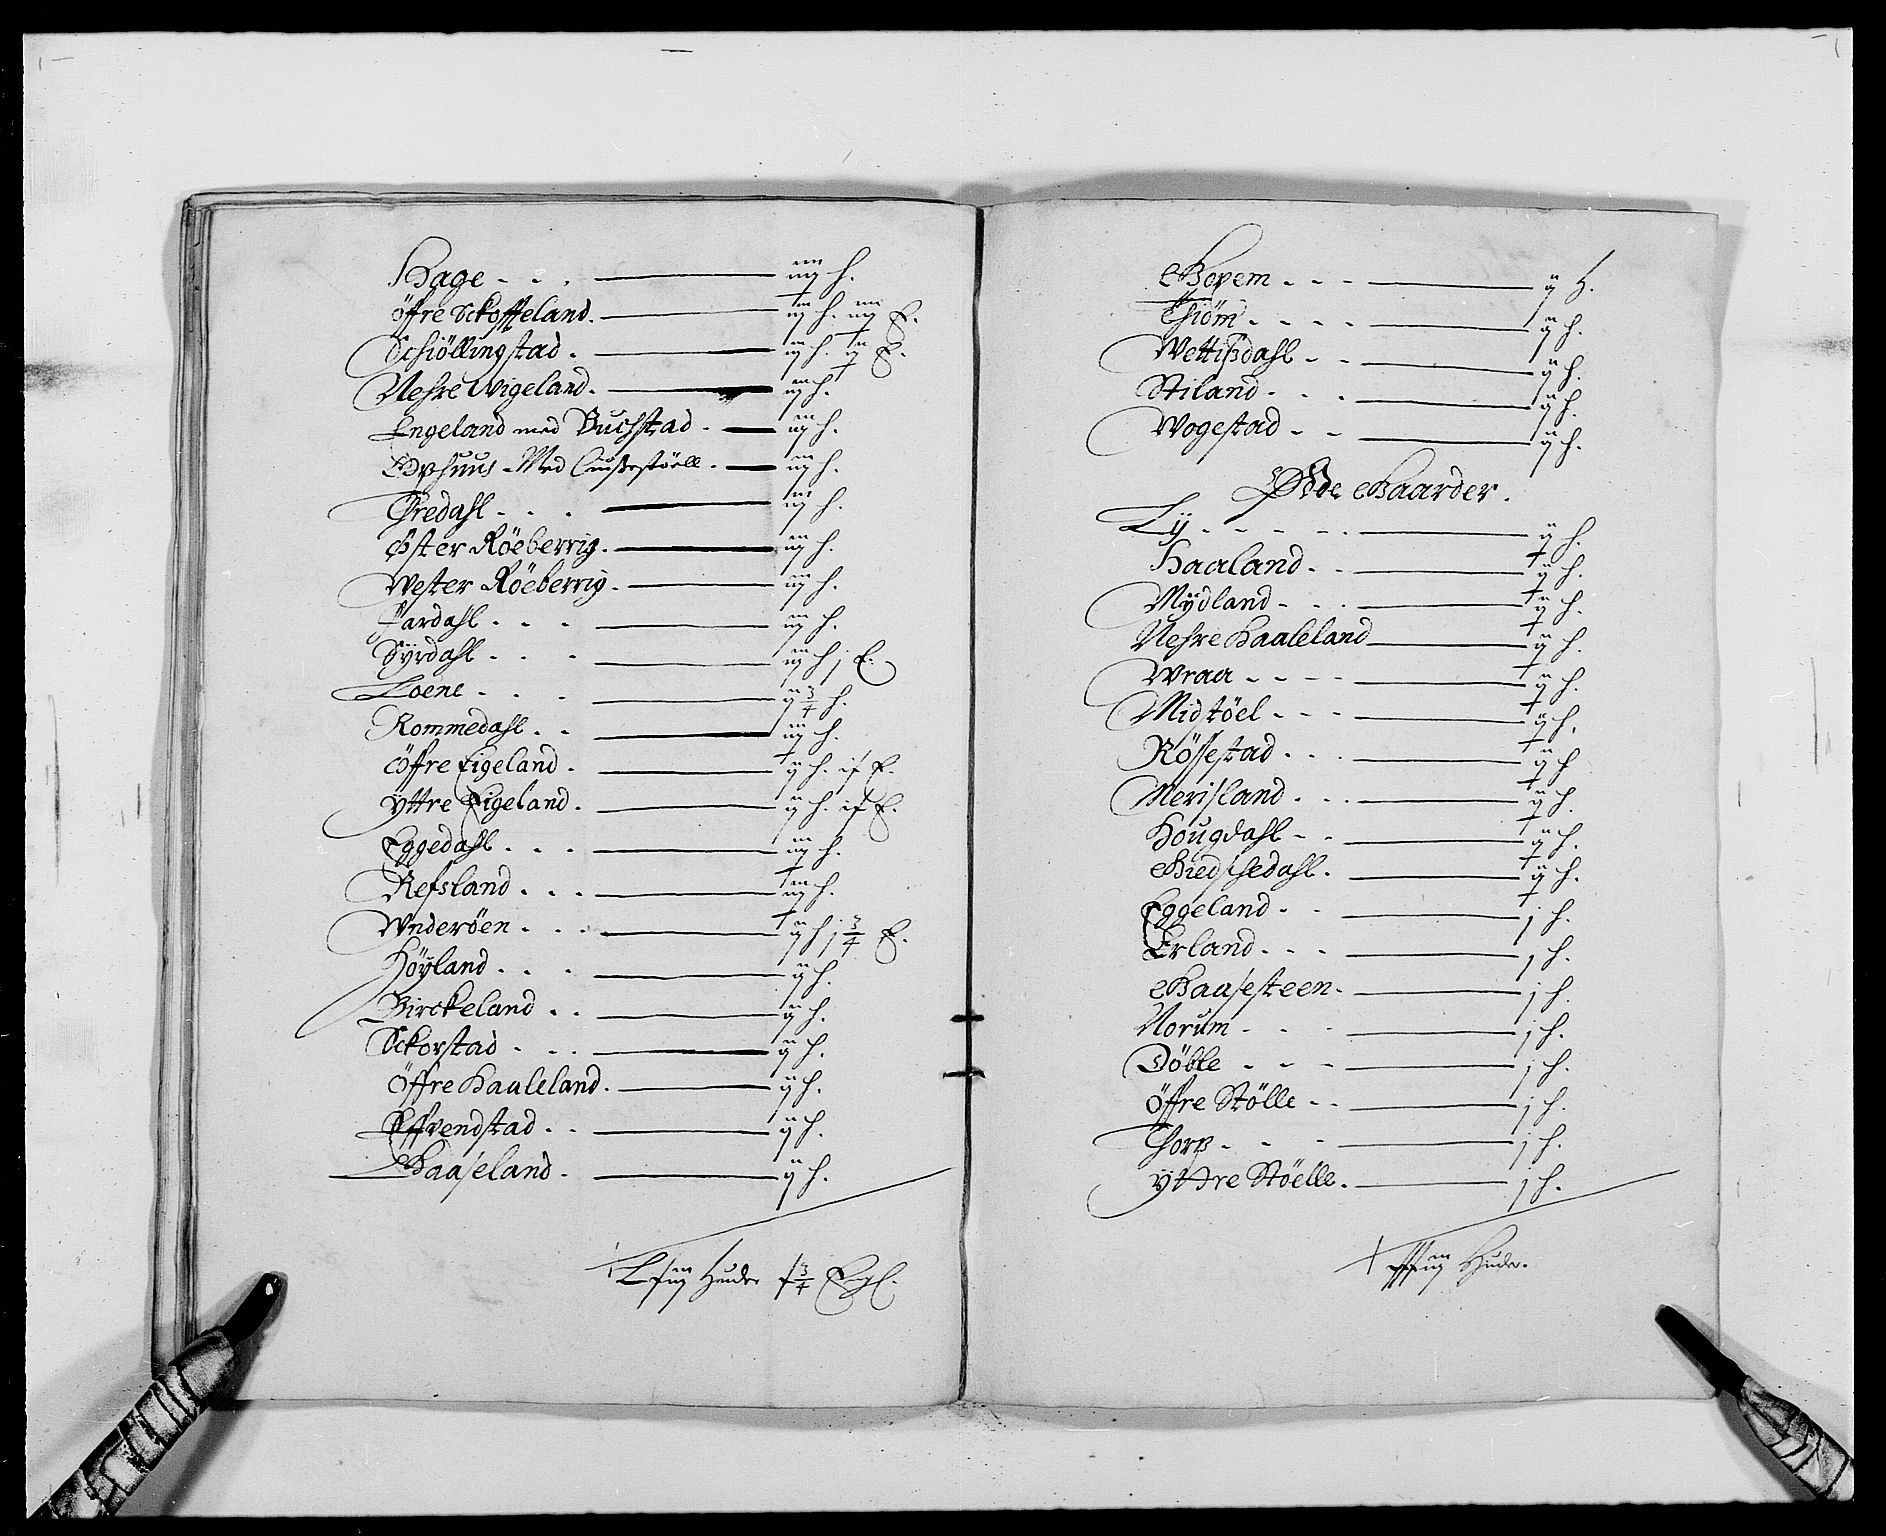 Hage - - - iiij h.
Öffre Sckoffeland. iiij h. iiij E.
Schiöllingstad. iij h. ij E.
Nehre Wigeland. iiij h.
Engeland med Buchstad. iiij h.
Med iiij h.
Øredahl - - - iiij h.
Øster Röeberrig. iiij h.
Wester Röeberrig. iiij h.
Jardahl - - - iiij h.
Syrdahl - - - iiij h j E.
Loene - - - ij 3/4 h.
Rommedahl - - iiij h.
öffre Eigeland. ij h. E.
yttre Eigeland. ij h. E.
Eggedahl - - - iiij h.
Refsland - - - iiij h.
Wnderöen - - - ij h j 3/4 E.
Höyland - - - ij h.
Birckeland - - ij h.
Sckorstad - - - ij h.
Öffre Haaleland. ij h.
Effvendstad - - ij h.
Gaaseland. ij h.
Huder 3/4 Eng.
ij h.
Thiöm - - - - ij h.
Wettißdahl - - ij h.
Stiland - - - ij h.
Wogestad - - ij h.
Øde Gaarder.
Lÿ - - - - - ij h.
Haaland - - ij h.
Mÿdland - - - ij h.
Nehre Haaleland ij h.
Wraa - - - - ij h.
Midtöel - - - ij h.
Rössestad - - - ij h
Merisland - - - ij h.
Hougdahl - - ij h.
Giedschedahl. ij h.
Eggeland - - j h.
Erland - - - j h.
Gaasesteen. j h.
Norum - - - j h.
Döble - - - j h.
Öffre Stölle - - j h.
Thorp - - - j h.
yttre Stöelle. j h.
Huder.